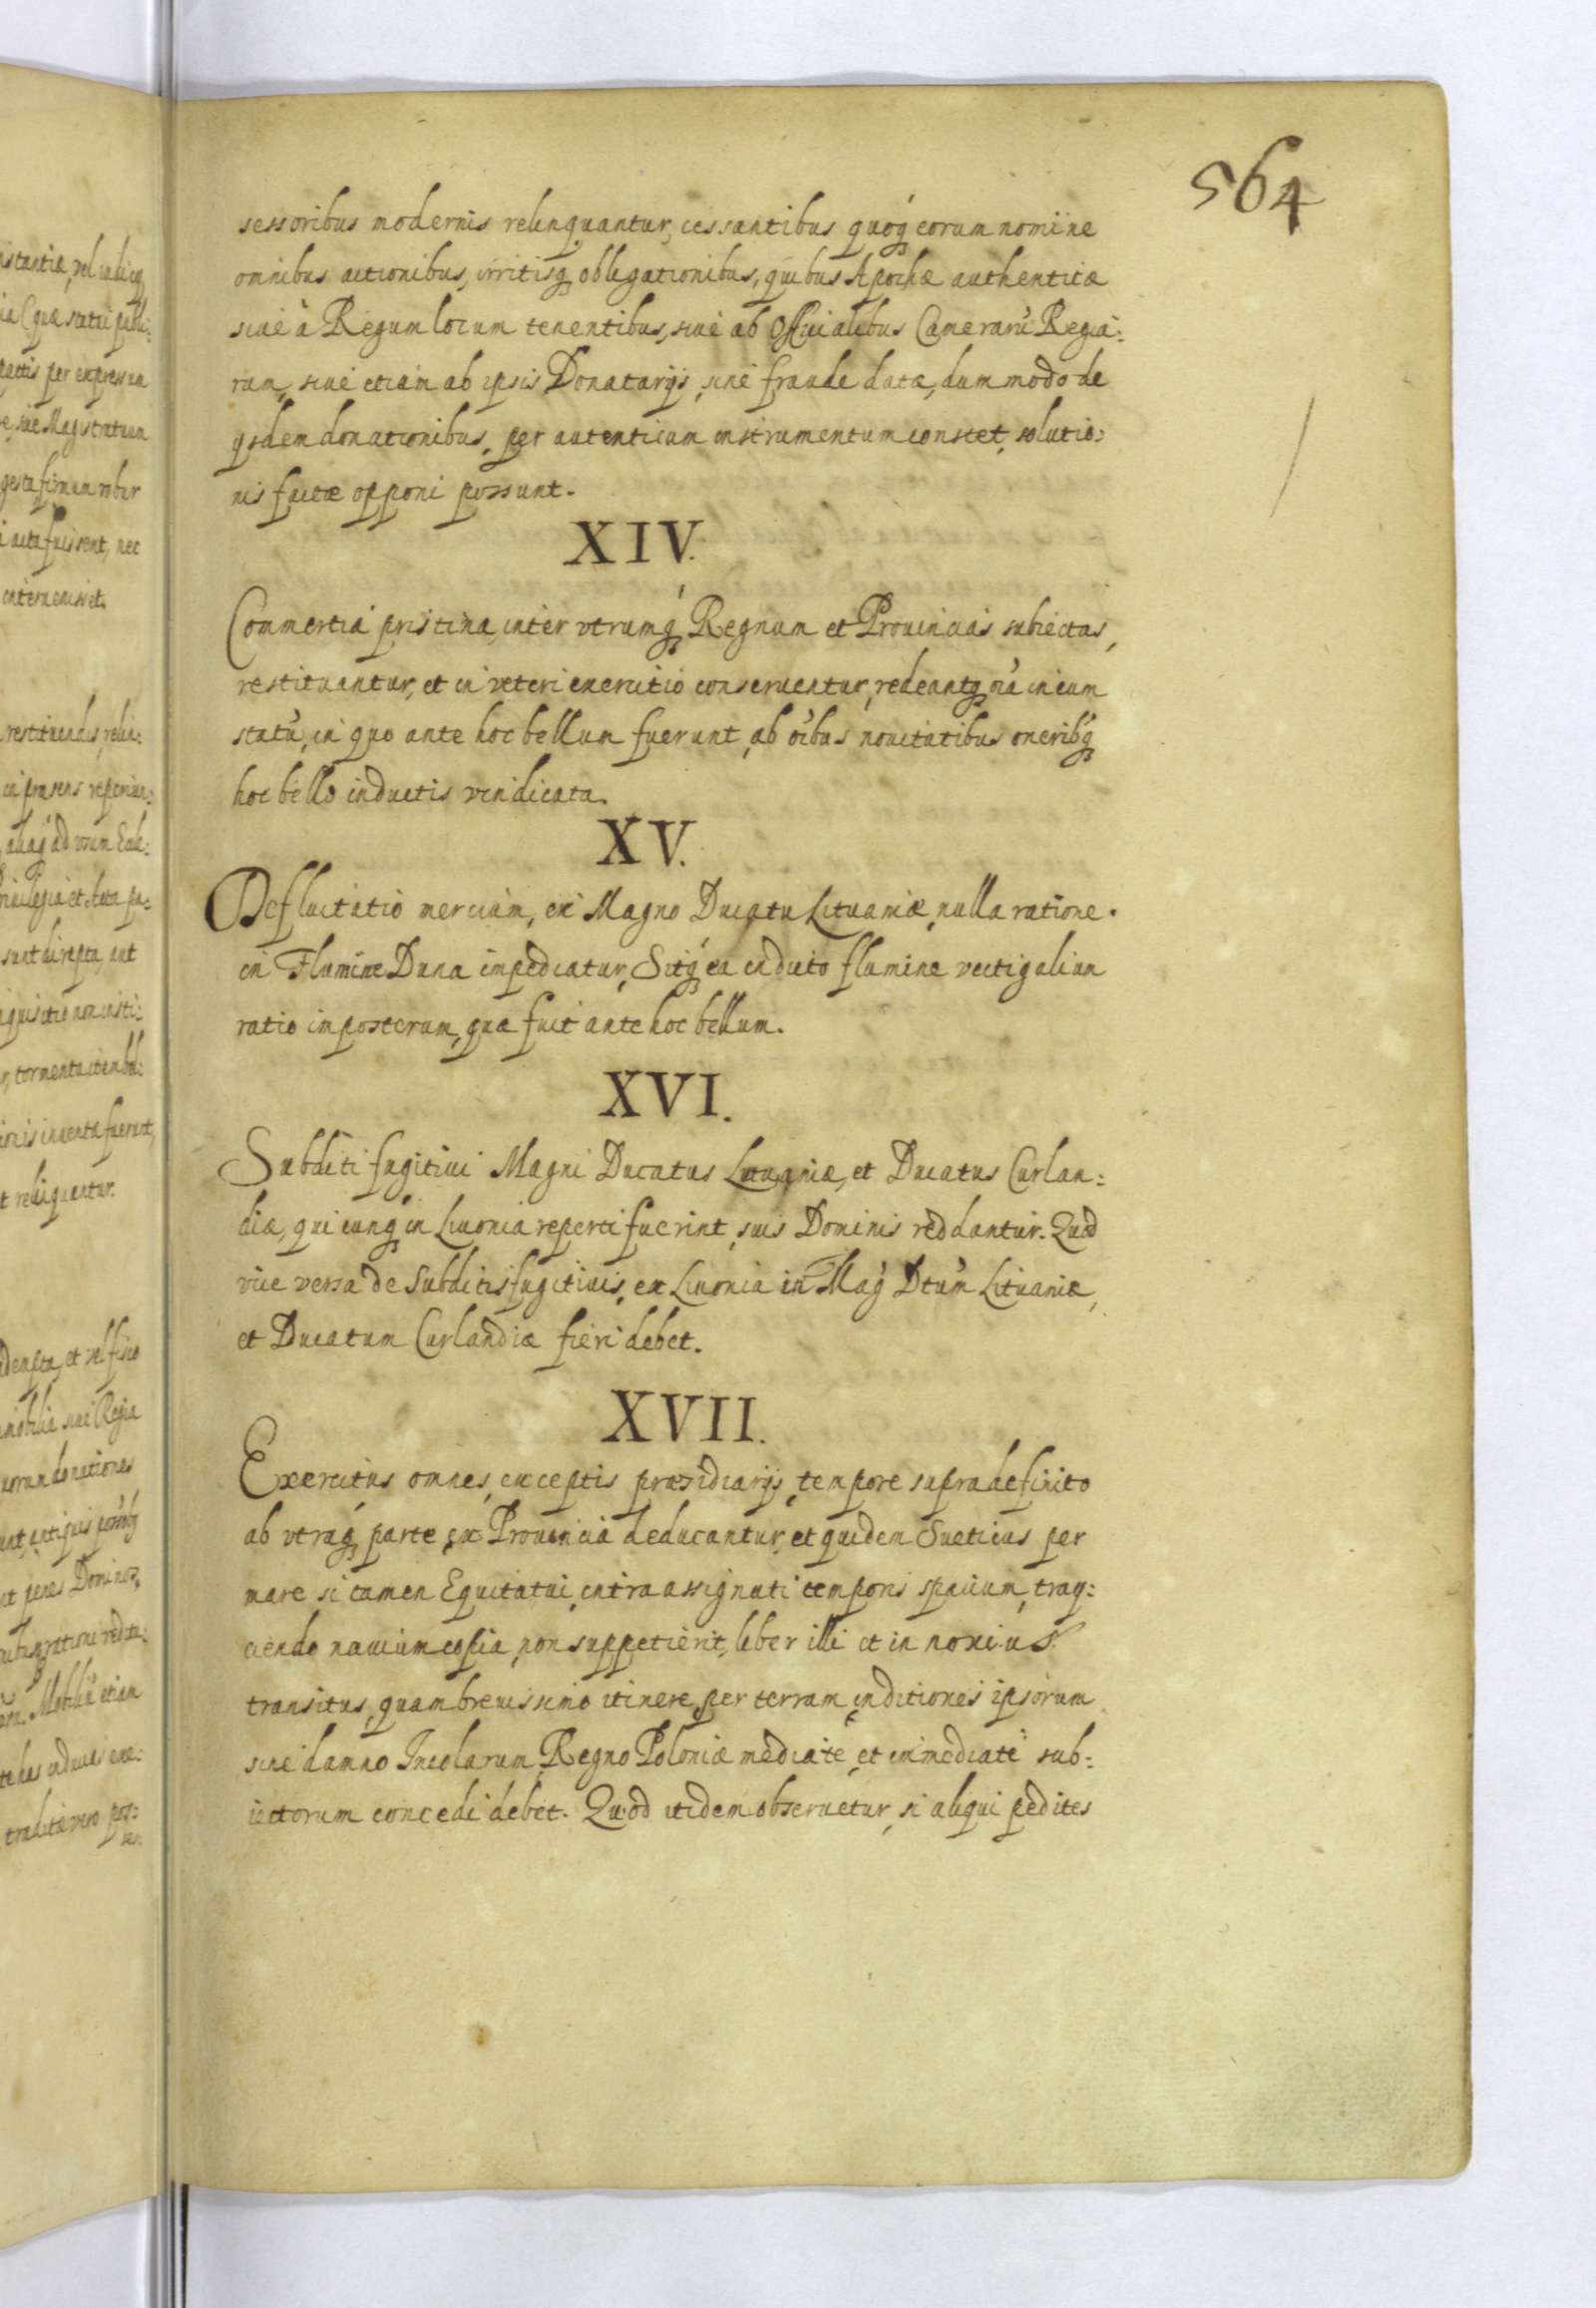 564
sessoribus modernis relinquantur, cessantibus quoq́ꝫ eorum nomine
omnibus actionibus, irritisqꝫ obligationibus, quibus Apochæ authenticæ
siue à Regum locum tenentibus, siue ab Officialibus Cameraru᷃ Regia:
rum, siue etiam ab ipsis Donatarijs, sine fraude datæ, dummodo de
ijsdem donationibus, per autenticum instrumentum constet, solutio:
nis factæ opponi possunt.
XIV.
Commertia pristina, inter vtrumq́ꝫ Regnum et Prouincias subiectas,
restituantur, et in veteri exercitio conseruentur, redeantqꝫ oı᷃a in eum
statu᷃, in quo ante hoc bellum fuerunt, ab oı᷃bus nouitatibus oneribq́ꝫ
hoc bello inductis vindicata.
XV.
Defluitatio mercium, ex Magno Ducatu Lituaniæ, nulla ratione.
in Flumine Duna impediatur, Sitq́ꝫ ea in dicto flumine vectigalium
ratio inposterum, quæ fuit ante hoc bellum.
XVI.
Subditi fugitiui Magni Ducatus Lituaniæ, et Ducatus Curlan:
diæ, quicunqꝫ in Liuonia reperti fuerint, suis Dominis reddantur. Quod
vice versa de Subditis fugitiuis, ex Liuonia in Mag᷃ Dtu᷃m Lituaniæ,
et Ducatum Curlandiæ fieri debet.
XVII.
Exercitus omnes, exceptis præsidiarijs, tempore supradefinito
ab vtraq́ꝫ parte, ex Prouincia deducantur, et quidem Sueticus per
mare si tamen Equitatui, intra assignati temporis spacium, traij:
ciendo nauium copia, non suppetierit, liber illi et innoxius
transitus, quam breuissimo itinere, per terram, inditiones ipsorum
sine damno Incolarum, Regno Poloniæ mediate, et inmediate sub:
iectorum concedi debet. Quod itidem obseruetur, si aliqui pedites